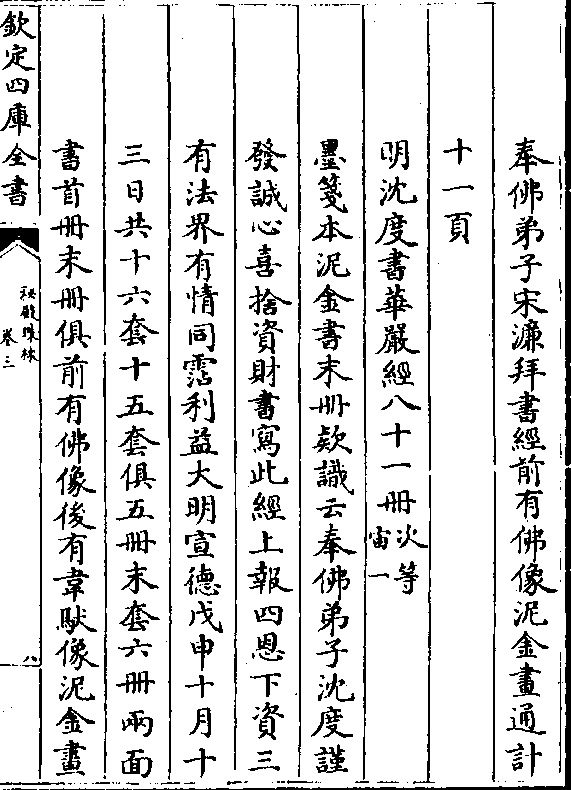 奉佛弟子宋濂拜書經前有佛像泥金畫通計
十一頁
明沈度書華嚴經八十一冊次等宙一
墨箋本泥金書末冊欵識云奉佛弟子沈度謹
發誠心喜捨資財書寫此經上報四恩下資三
有法界有情同霑利益大明宣德戊申十月十
三日共十六套十五套俱五冊末套六冊兩面
書首冊末冊俱前有佛像後有韋馱像泥金畫
欽定四庫全書
秘殿珠林
卷三
八